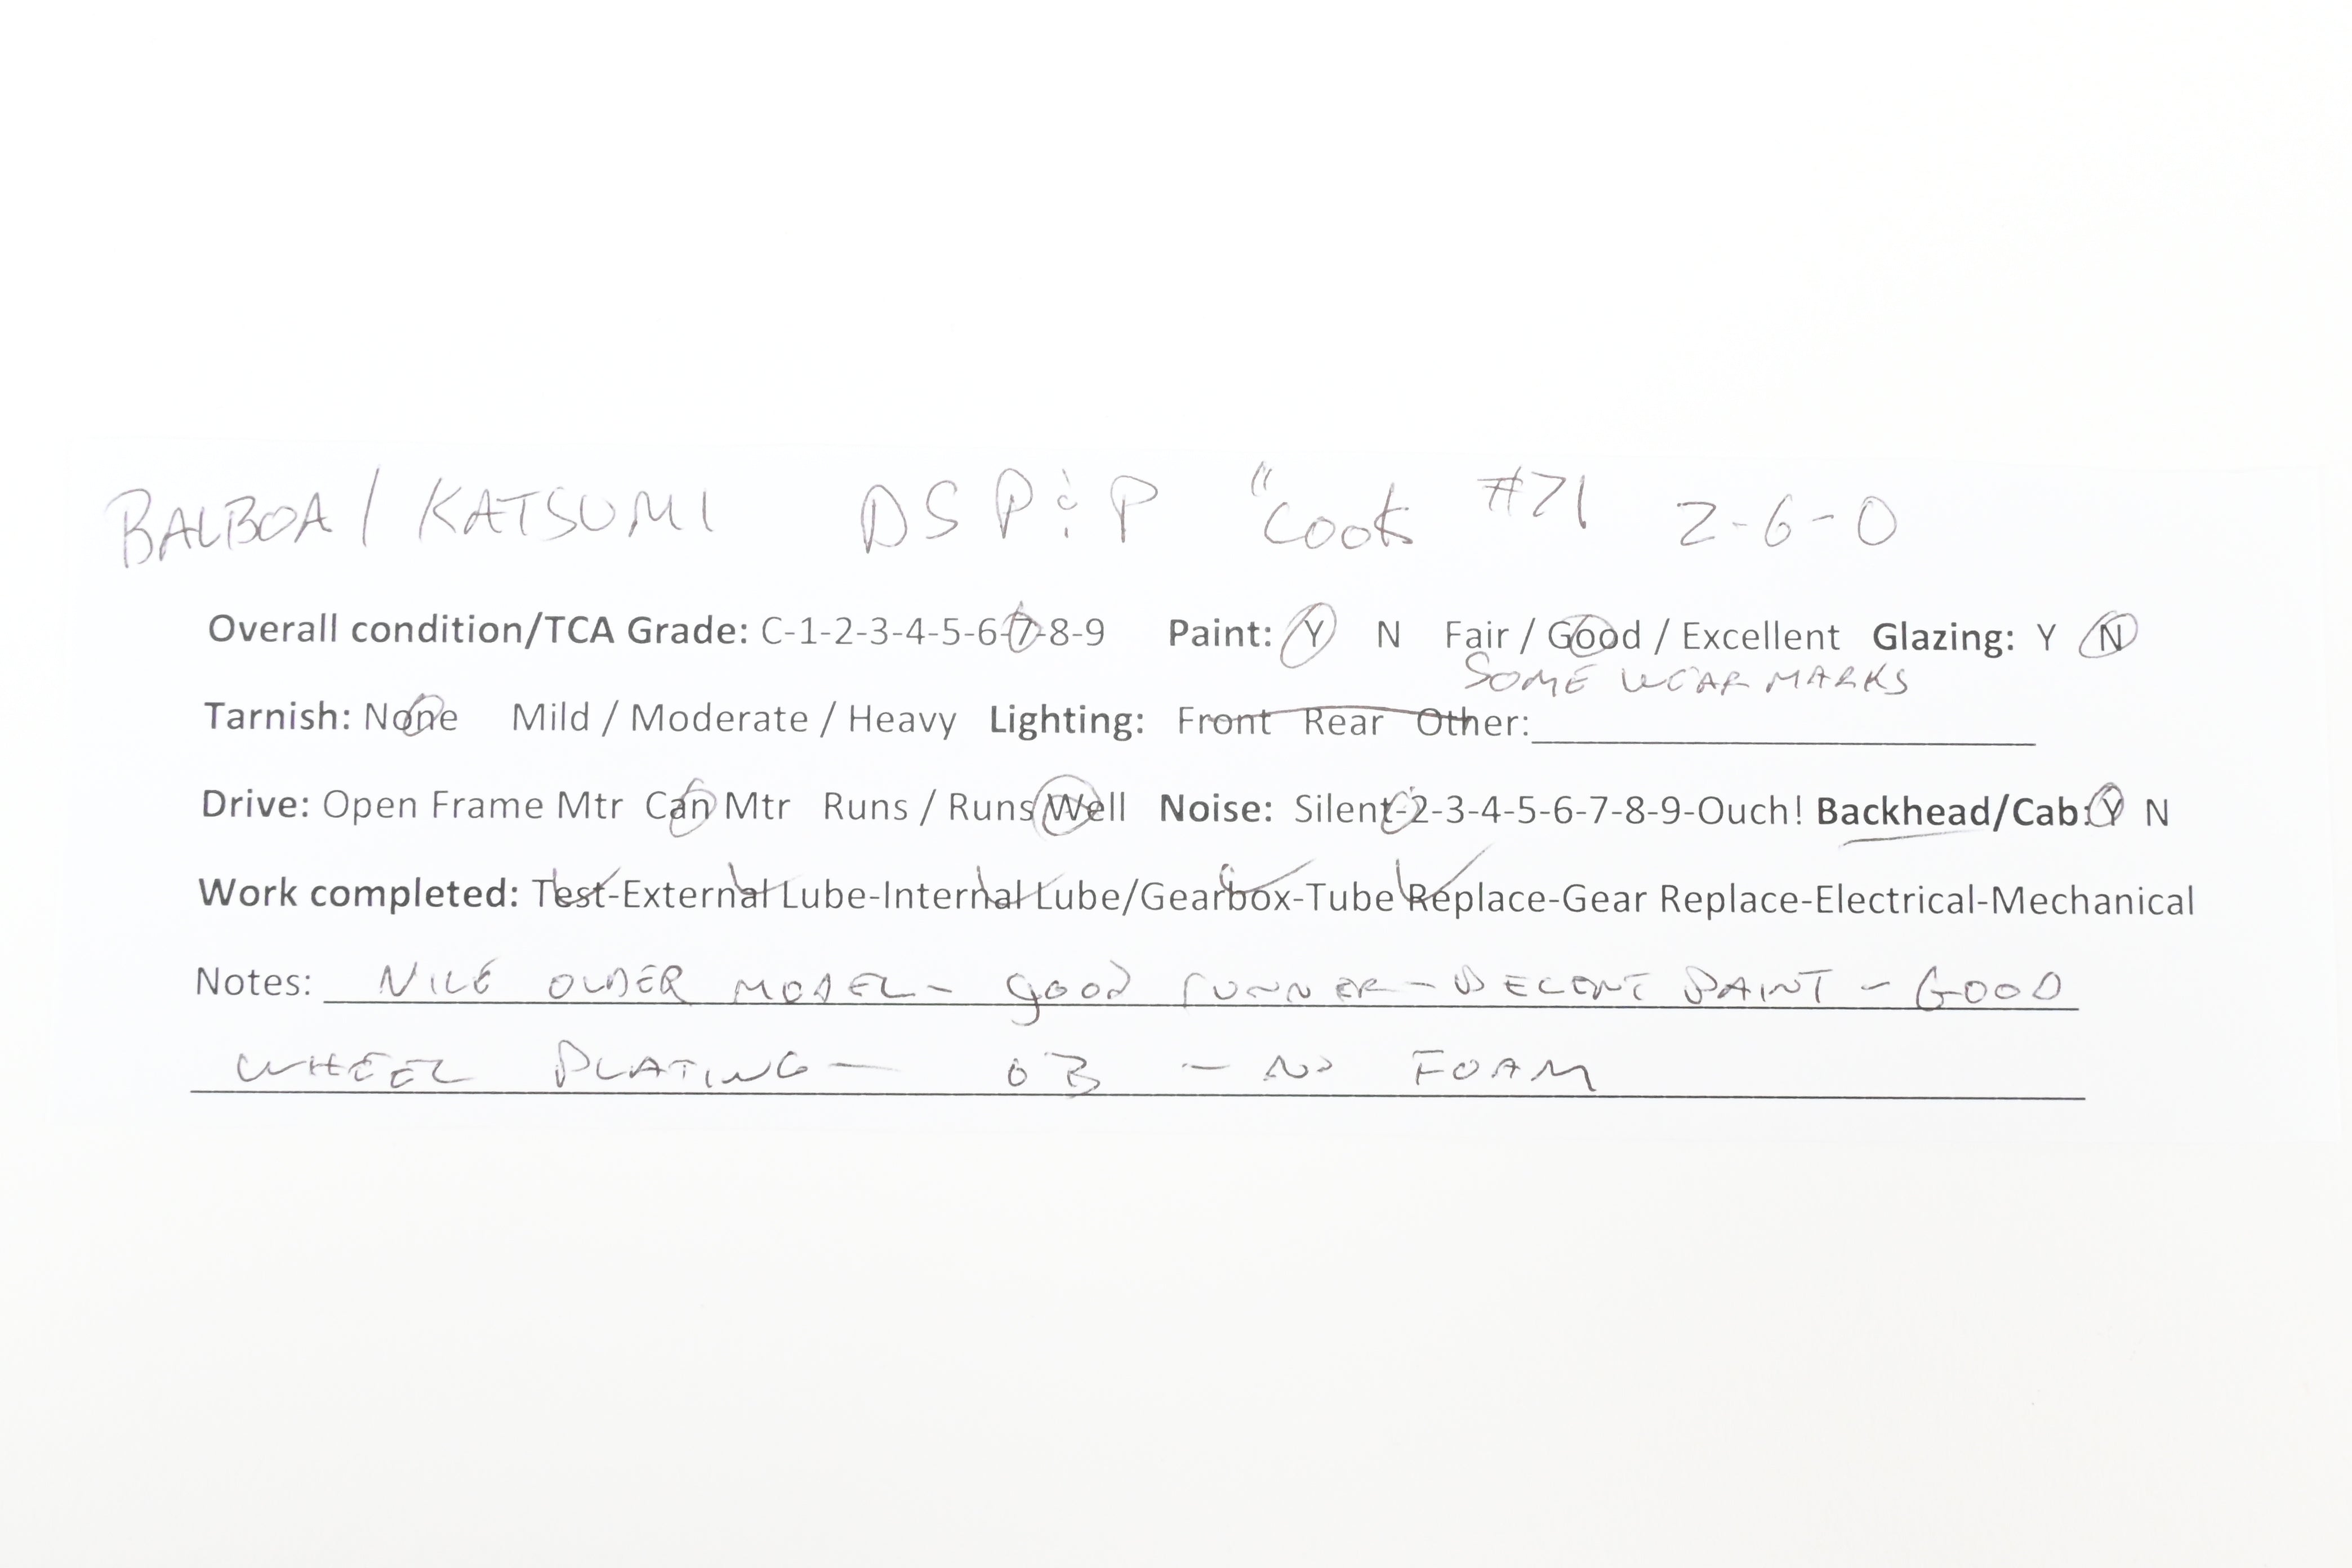 BALBOA / KATSUMI DSP&P "Cook #71 2-6-0
Overall condition/TCA Grade: C-1-2-3-4-5-6-7-8-9 Paint: Y N Fair / Good / Excellent Glazing: Y N
SOME WEAR MARKS
Tarnish: None Mild / Moderate / Heavy Lighting: Front Rear Other:
Drive: Open Frame Mtr Can Mtr Runs / Runs Well Noise: Silent-2-3-4-5-6-7-8-9-Ouch! Backhead/Cab: Y N
Work completed: Test-External Lube-Internal Lube/Gearbox-Tube Replace-Gear Replace-Electrical-Mechanical
Notes: NICE OLDER MODEL - good runner - DECENT PAINT - GOOD
WHEEL PLATING - OB - NO FOAM